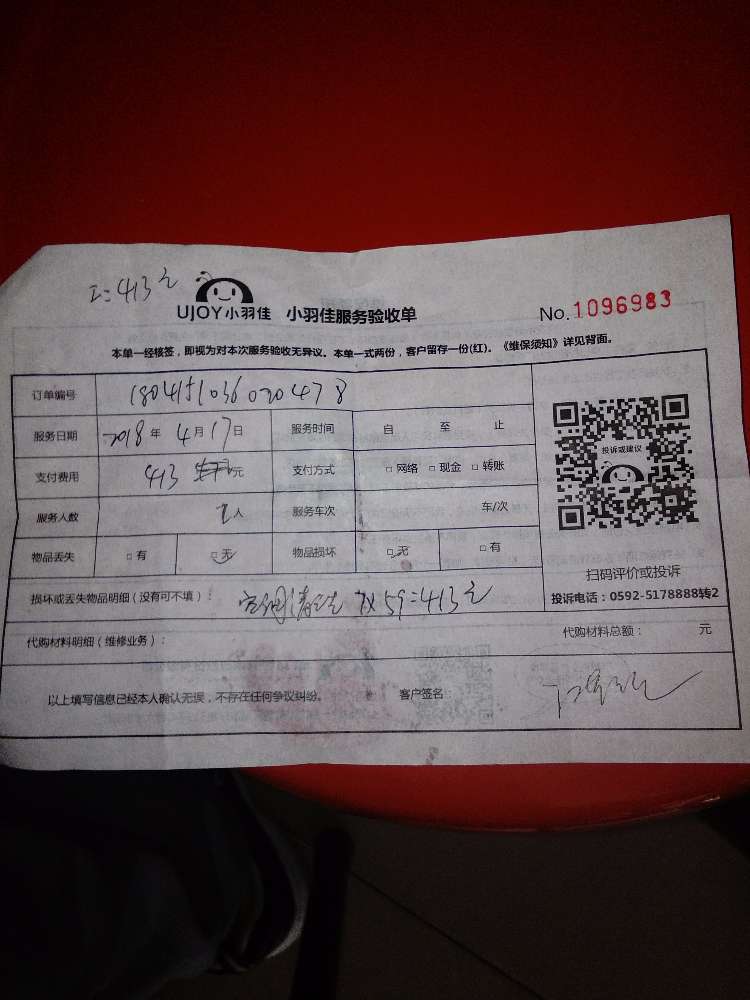 413元
UJOY小羽佳 小羽佳服务验收单 No.1096983
本单一经核签，即视为对本次服务验收无异议。本单一式两份，客户留存一份(红)。《维保须知》详见背面。
订单编号
服务日期 2018年4月17日 服务时间 自 至 止
支付费用 413 元 支付方式 □网络 □现金 □转账
投诉或建议
服务人数 人 服务车次 车/次
物品丢失 □有 □无 物品损坏 □无 □有
扫码评价或投诉
损坏或丢失物品明细（没有可不填）： 空调清洗 7X59=413元
投诉电话：0592-5178888转2
代购材料明细（维修业务）： 代购材料总额： 元
以上填写信息已经本人确认无误，不存在任何争议纠纷。 客户签名：